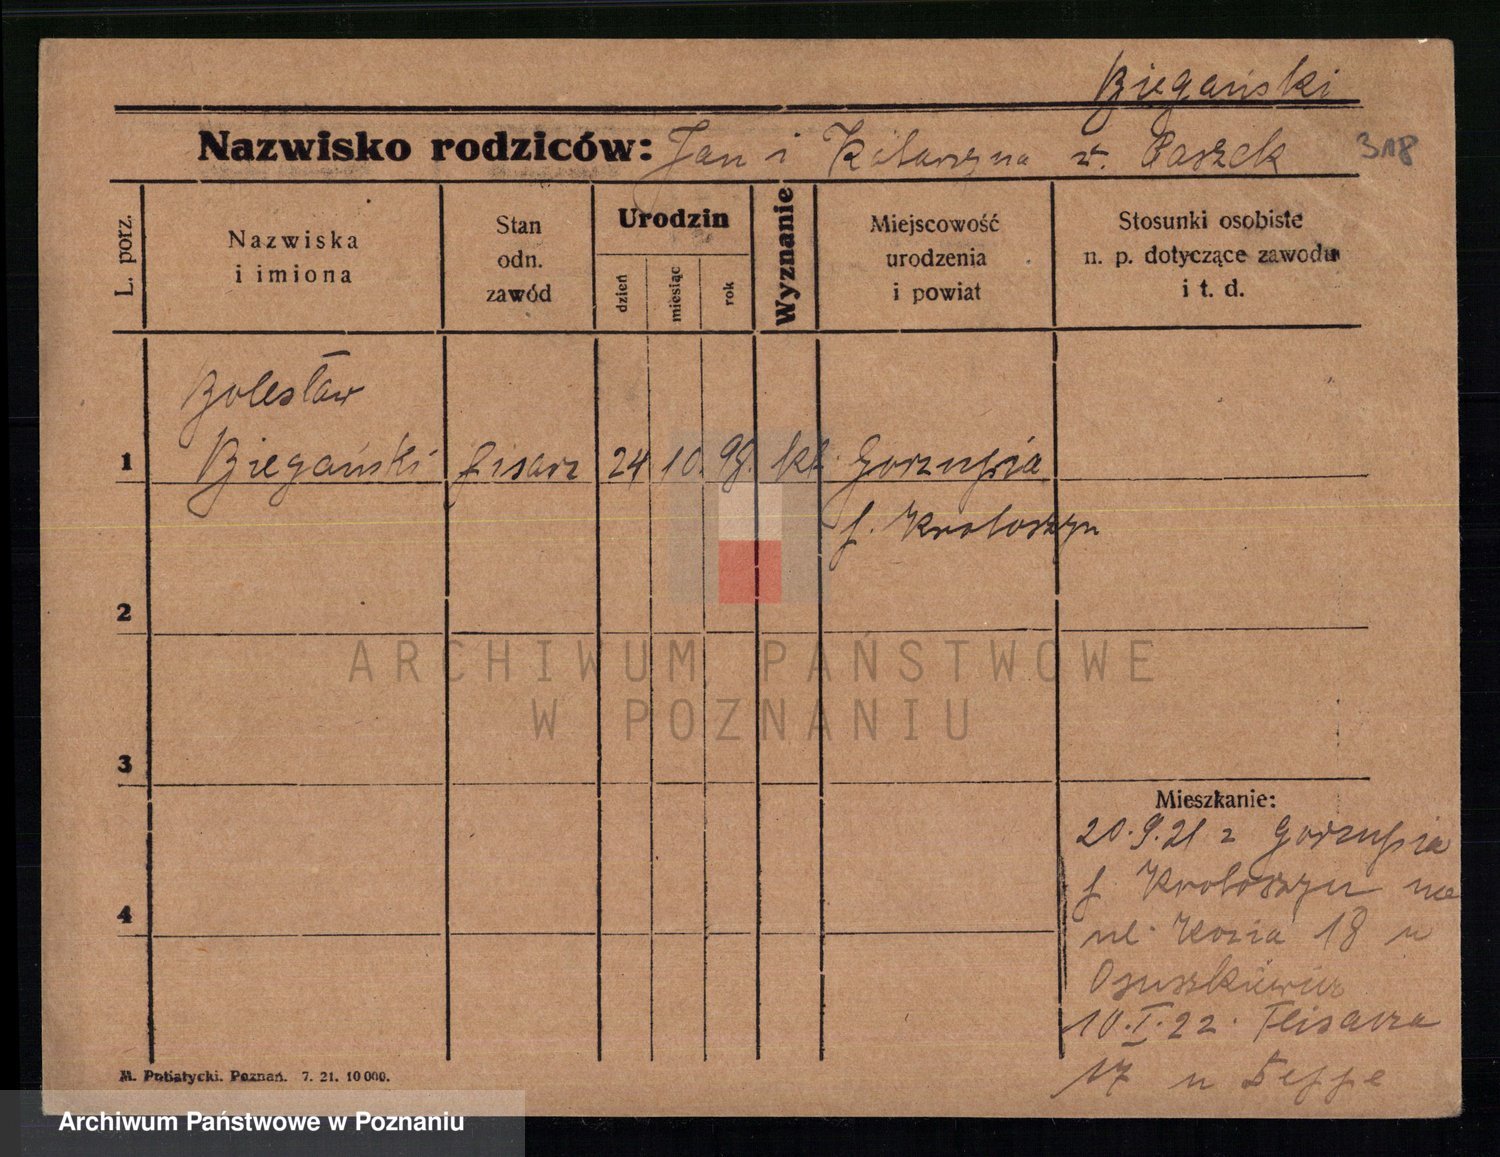 Biegański
Nazwisko rodziców: Jan i Katarzyna z. Paszek 318
L. porz.
Nazwiska
i imiona
Stan
odn.
zawód
Urodzin
dzień
miesiąc
rok
Wyznanie
Miejscowość
urodzenia
i powiat
Stosunki osobiste
n. p. dotyczące zawodu
i t. d.
Bolesław
1 Biegański pisarz 24 10. 98. kt. Gorzupia
p. Krotoszyn
2
ARCHIWUM PAŃSTWOWE
W POZNANIU
3
Mieszkanie:
20.9.21 z Gorzupia
p. Krotoszyn na
4
ul. Kozia 18 u
Osuszkiewicz
10.I.22. Flisacza
17 u
M. Pubiatycki. Poznań. 7. 21. 10 000.
Archiwum Państwowe w Poznaniu